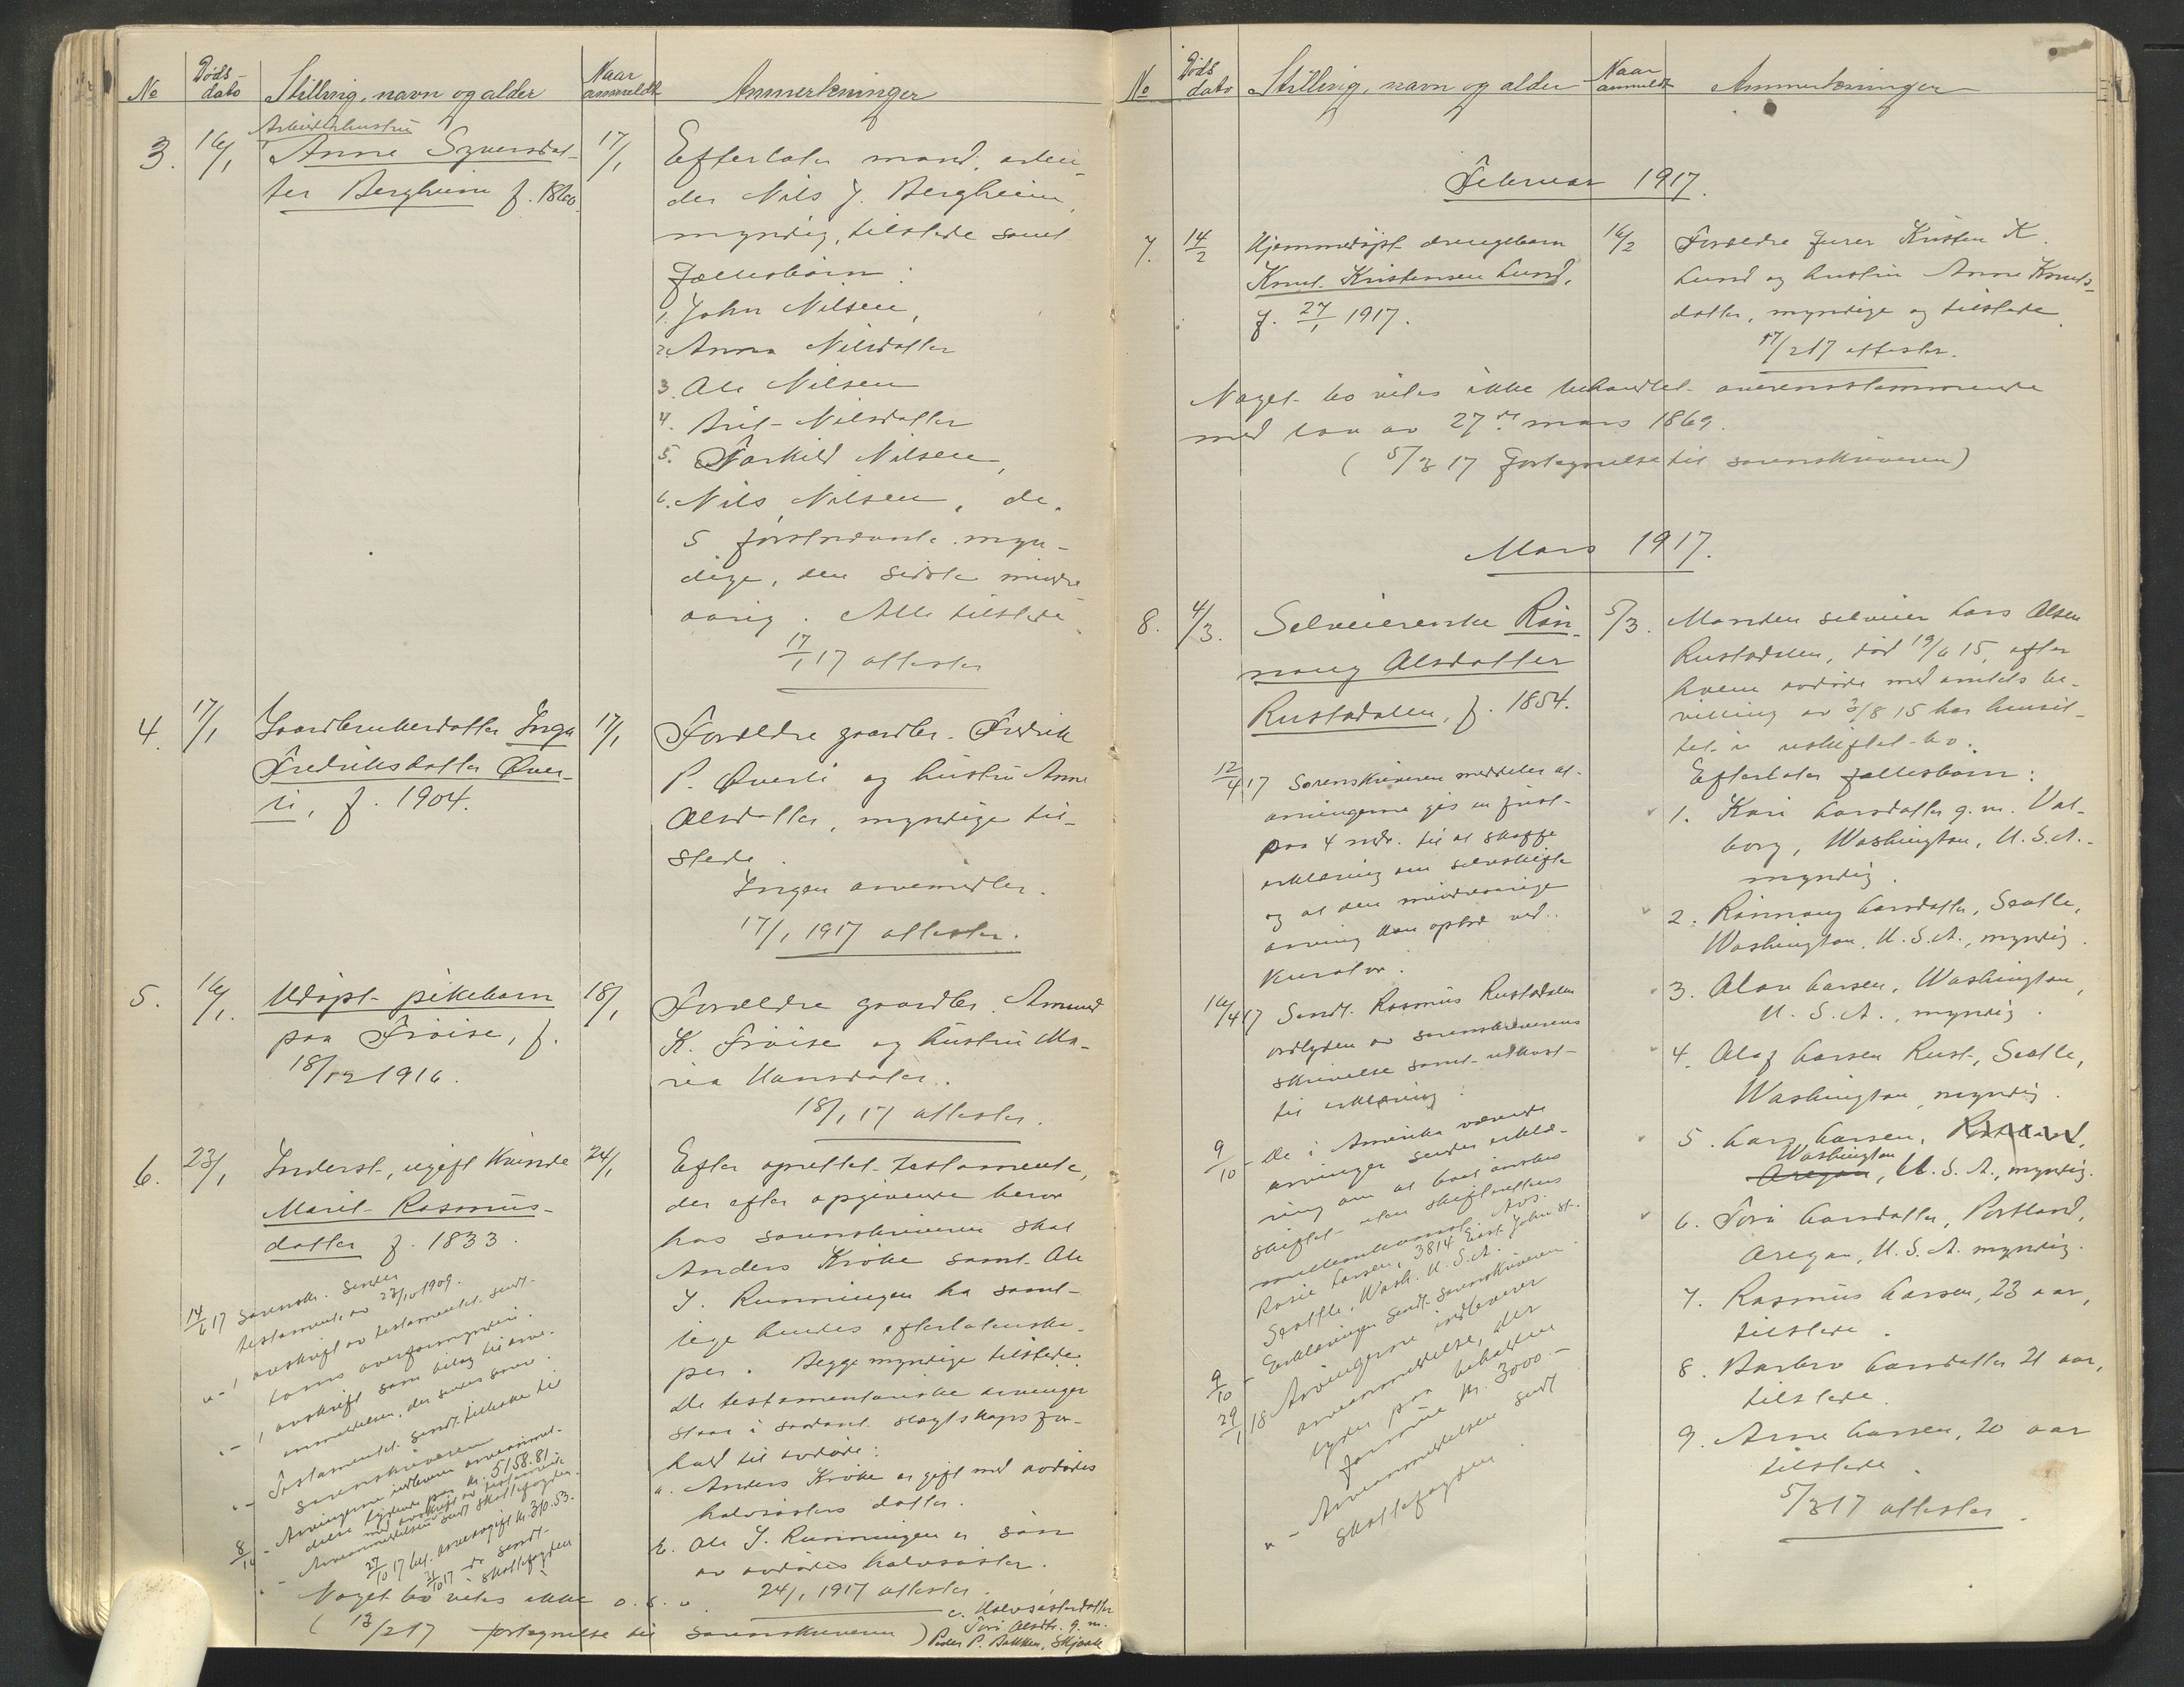 No Döds-dato Stilling, navn og alder Naar anmeldt Anmerkninger
3. 16/1 Arbeiderhustru 17/1
Anne Syversdat-
ter Bergheim f. 1860.
Efterlater mand, arbei-
der Nils J. Bergheim,
myndig, tilstede samt
fællesbörn:
1. John Nilsen,
2. Anna Nilsdatter
3. Ole Nilsen
4. Brit Nilsdatter
5. Torkild Nilsen,
6. Nils Nilsen, de
5 förstnævnte myn-
dige, den sidste mindre
aarig. Alle tilstede.
17/1 17 attester
4. 17/1 Gaardbrukerdatter Inga 17/1
Fredriksdatter Över-
li, f. 1904.
Forældre gaardbr. Fredrik
P. Överli og hustru Anne
Olsdatter, myndige til-
stede.
Ingen arvemidler.
17/1 1917 attester.
5. 16/1. Udöpt pikebarn 18/1
paa Fröise, f.
18/12 1916.
Forældre gaardbr. Amund
K. Fröise og hustru Ma-
ria Hansdatter.
18/1 17 attester.
6. 23/1 Inderst, ugift kvinde 24/1
Marit Rasmus-
datter f. 1833.
Efter oprettet testamente,
der efter opgivende beror
hos sorenskriveren skal
Anders Kröke samt Ole
J. Runningen ha samt-
lige hendes efterladenska-
per. Begge myndige tilstede.
De testamentariske arvinger
staar i saadant slegtskapsfor-
hold til avdöde:
a. Anders Kröke er gift med avdödes
halvsösters datter.
b. Ole J. Runningen er sön
av avdödes halvsöster.
24/1 1917 attester.
c. Halvsösterdatter
Tori Olsdtr. g. m.
Peder P. Bakken, Skjaak
14/6 17 Sorenskr. sender
testamente av 23/10 1909.
" - 1 avskrift av testamentet sendt
Loms overformynderi.
" - 1 avskrift som bilag til arve-
anmeldelsen, der sendes senere.
" - Testamentet sendt tilbake til
sorenskriveren
8/10 - Arvingerne indleverer arveanmel-
delse lydende paa kr. 5158.81
med avskrift av testamente
" - Arveanmeldelsen sendt skattefogden.
27/10 17 bet. arveavgift kr. 310.53.
31/10 17 - do sendt skattefogden
Noget bo vites ikke o. s. v.
(13/2 17 fortegnelse til sorenskriveren)
No Döds dato Stilling, navn og alder Naar anmeldt Anmerkninger
Februar 1917.
7. 14/2 Hjemmedöpt drengebarn 16/2
Knut Kristensen Lund,
f. 27/1 1917.
Forældre furer Kristen K.
Lund og hustru Anne Knuts-
datter, myndige og tilstede
17/2 17 attester.
Noget bo vites ikke behandlet overensstemmende
med lov av 27de mars 1869.
(5/3 17 fortegnelse til sorenskriveren)
Mars 1917.
8. 4/3. Selveierenke Rön- 5/3.
naug Olsdatter
Rustadalen, f. 1854.
Manden selveier Lars Olsen
Rustadalen, död 19/6 15, efter
hvem avdöde med amtets be-
villing av 3/8 15 har hensit-
tet i uskiftet bo.
Efterlater fællesbarn:
1. Kari Larsdatter g. m. Val-
borg, Washington, U. S. A.
myndig.
2. Rönnaug Larsdatter, Seatle,
Washington, U. S. A., myndig.
3. Olav Larsen, Washington,
U. S. A., myndig.
4. Olaf Larsen Rust, Seatle,
Washington, myndig.
5. Lars Larsen,
Washington
Oregon, U. S. A., myndig.
6. Tora Larsdatter, Portland,
Oregon, U. S. A. myndig.
7. Rasmus Larsen, 23 aar,
tilstede.
8. Barbro Larsdatter 21 aar,
tilstede.
9. Arne Larsen, 20 aar
tilstede.
5/3 17 attester.
12/4 17 Sorenskriveren meddeler at
arvingerne gis en frist
paa 4 mdr. til at skaffe
erklæring om selvskifte
og at den mindreaarige
arving kan optræ ved
kurator.
16/4 17 Sendt Rasmus Rustadalen
ordlyden av sorenskriverens
skrivelse samt utkast
til erklæring.
9/10 - De i Amerika værende
arvinger sender erklæ-
ring om at boet önskes
skiftet uten skifterettens
mellemkomst. Adr.
Rosie Larsen, 3814 East John st.
Seattle, Wash. U. S. A.
9/10 - Erklæringen sendt sorenskriveren.
29/1 18 Arvingerne indleverer
arveanmeldelse, der
lyder paa beholden
formue kr. 3000.-
" - Arveanmeldelsen sendt
skattefogden.